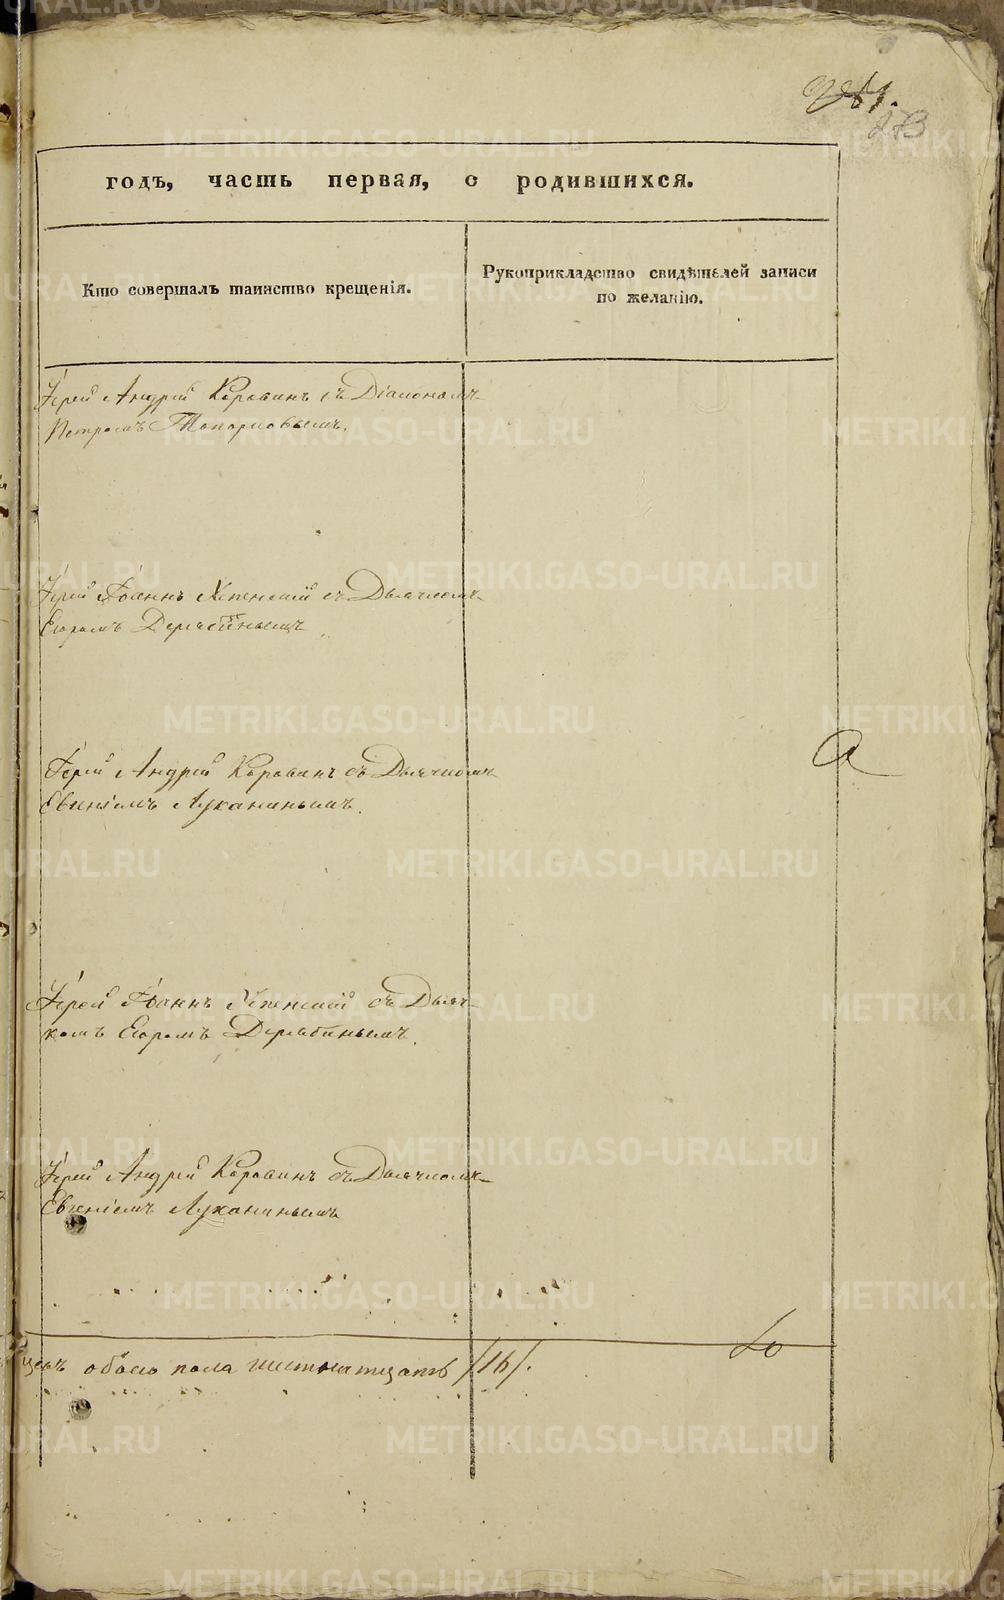 273
годъ, часть первая, о родившихся.
Кто совершалъ таинство крещенія.
Рукоприкладство свидѣтелей записи
по желанію.
Іерей Андрей Коровинъ съ Діакономъ
Петромъ Топорковымъ.
Іерей Іоаннъ Успенскій съ Дьячкомъ
Егоромъ Дерябинымъ
Іерей Андрей Коровинъ съ Дьячкомъ
Евгеніемъ Луканинымъ.
Іерей Іоаннъ Успенскій съ Дьяч-
комъ Егоромъ Дерябинымъ.
Іерей Андрей Коровинъ съ Дьячкомъ
Евгеніемъ Луканинымъ
обоего пола шестнатцать /16/.
METRIKI.GASO-URAL.RU